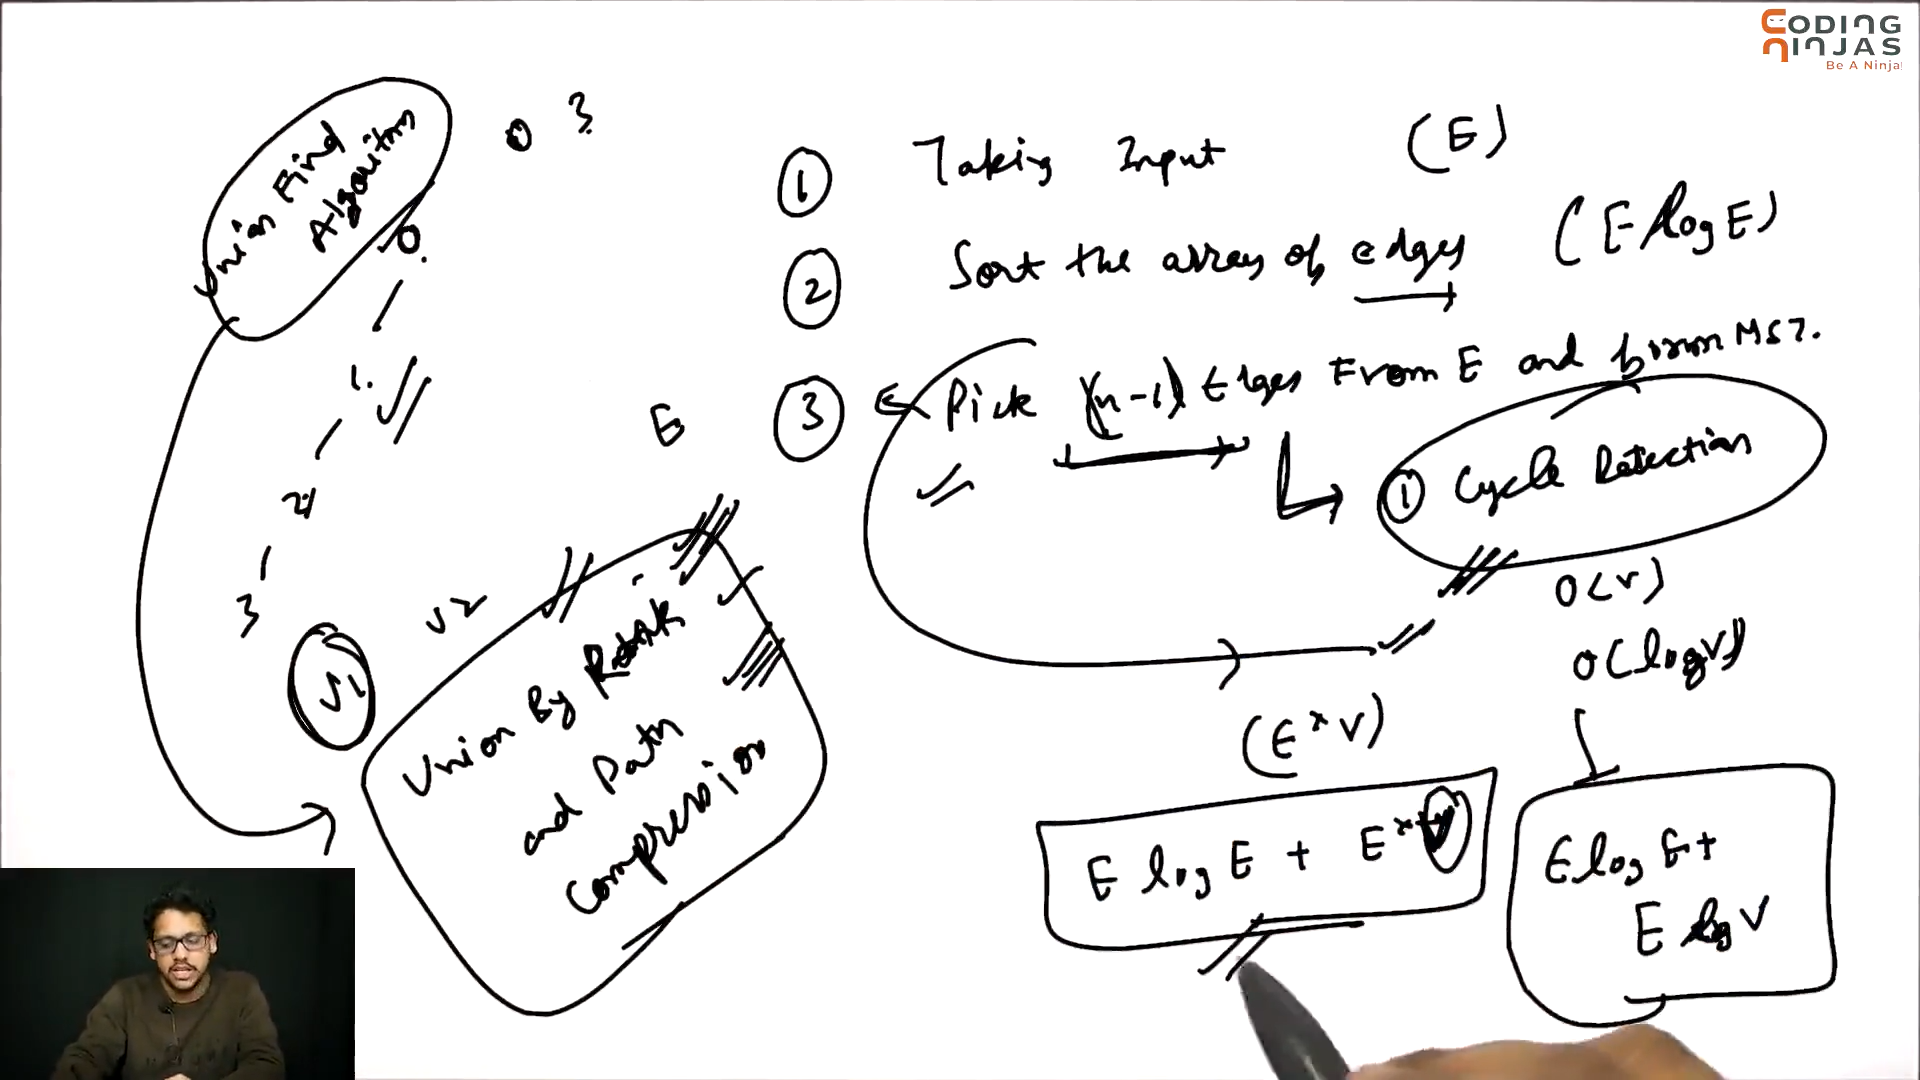 CODING
NINJAS
Be A Ninja!
Union Find
Algorithm
0 3
0
1
2
3
E
V1
V2
Union By Rank
and Path
Compression
1 Taking Input (E)
2 Sort the array of edges (E log E)
3 Pick (n-1) Edges From E and form MST.
1 Cycle Detection
O(V)
O(log V)
(E × V)
E log E + E × V
E log E +
E log V